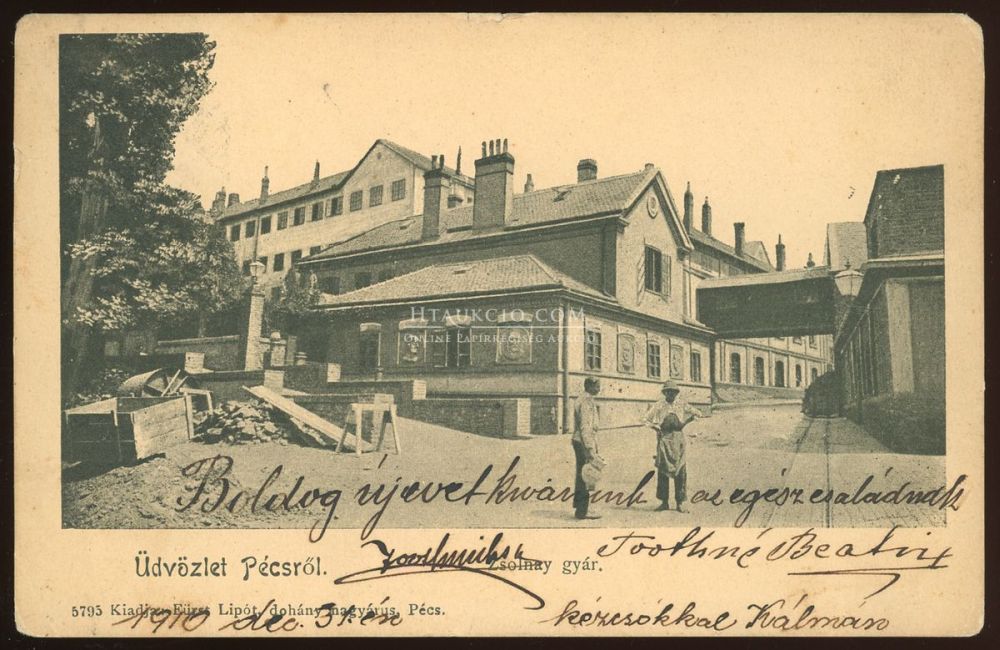 HTAUKCIO.COM
ONLINE PAPÍRRÉGISÉG AUKCIÓ
Boldog újévet kivánunk az egész családnak
Üdvözlet Pécsről.
Zsolnay gyár.
Toothné Beatrix
5795 Kiadja: Fürst Lipót, dohány nagyárus, Pécs.
1910 dec. 31.én
kézcsókkal Kálmán